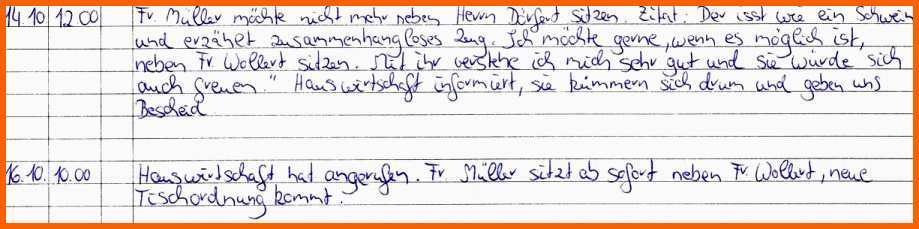 14.10 12.00 Fr. Müller möchte nicht mehr neben Herrn Dirfert sitzen. Zitat: Der isst wie ein Schwein
und erzählt zusammenhangloses Zeug. Ich möchte gerne, wenn es möglich ist,
neben Fr. Wollert sitzen. Mit ihr verstehe ich mich sehr gut und sie würde sich
auch freuen." Hauswirtschaft informiert, sie kümmern sich drum und geben uns
Bescheid
16.10. 10.00 Hauswirtschaft hat angerufen. Fr Müller sitzt ab sofort neben Fr. Wollert, neue
Tischordnung kommt.